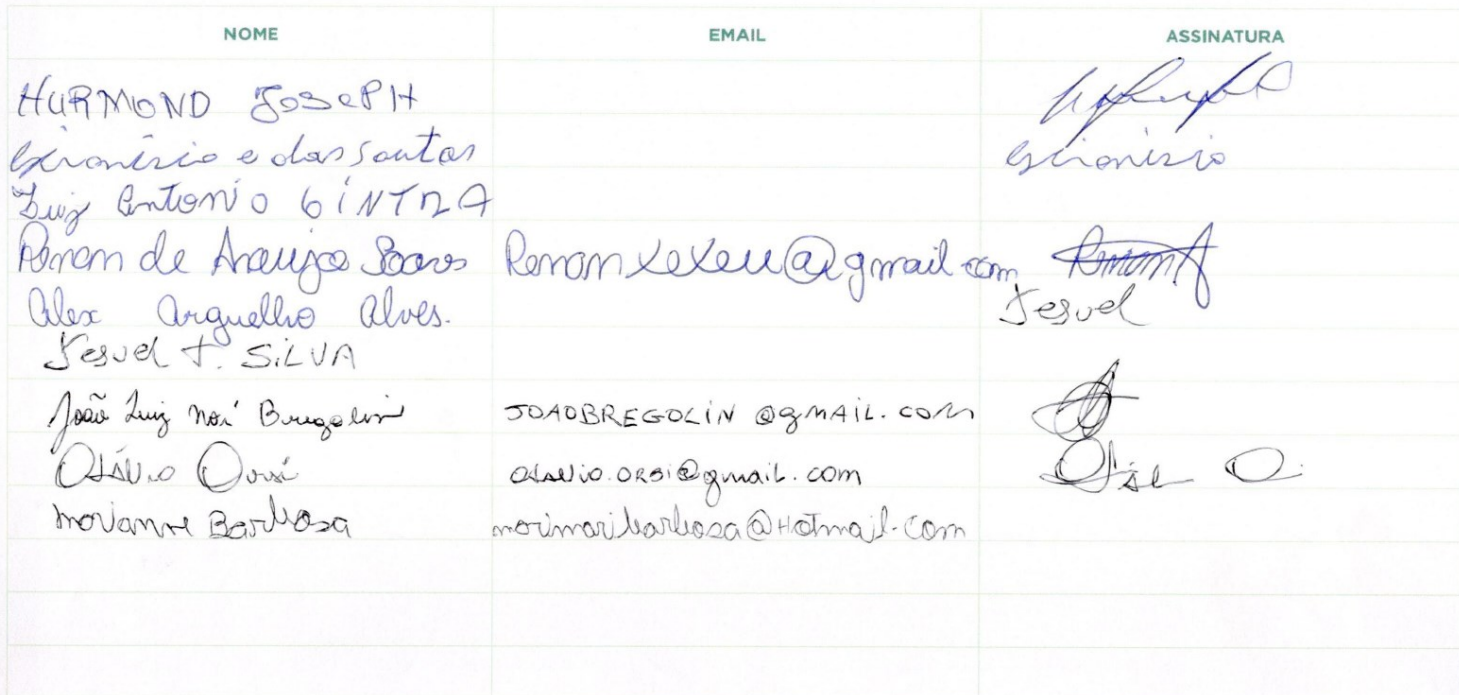 NOME EMAIL ASSINATURA
HURMOND JOSEPH
e dos Santos
Luiz Antonio CINTRA
Renan de Araujo Soares Renanxexeu@gmail.com Renan
Alex Arguelho Alves. Jesuel
Jesuel T. SILVA
João Luiz Noi Bregolin JOAOBREGOLIN@gmAIL.com
Otávio Orsi otavio.orsi@gmail.com
Marianne Barbosa marimaribarbosa@Hotmail.com